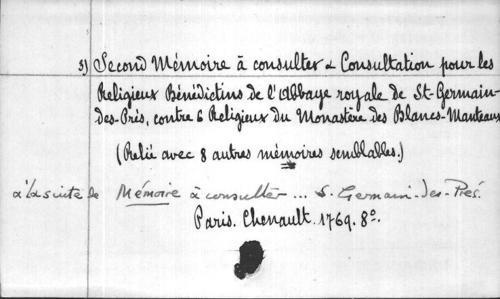 5) Second Mémoire à consulter & Consultation pour les
Religieux Bénédictins de l'Abbaye royale de St-Germain-
des-Prés, contre 6 Religieux du Monastère des Blancs-Manteaux
(Relié avec 8 autres mémoires semblables.)
à la suite de Mémoire à consulter ... S. Germain-des-Prés.
Paris. Chenault. 1769. 8º.